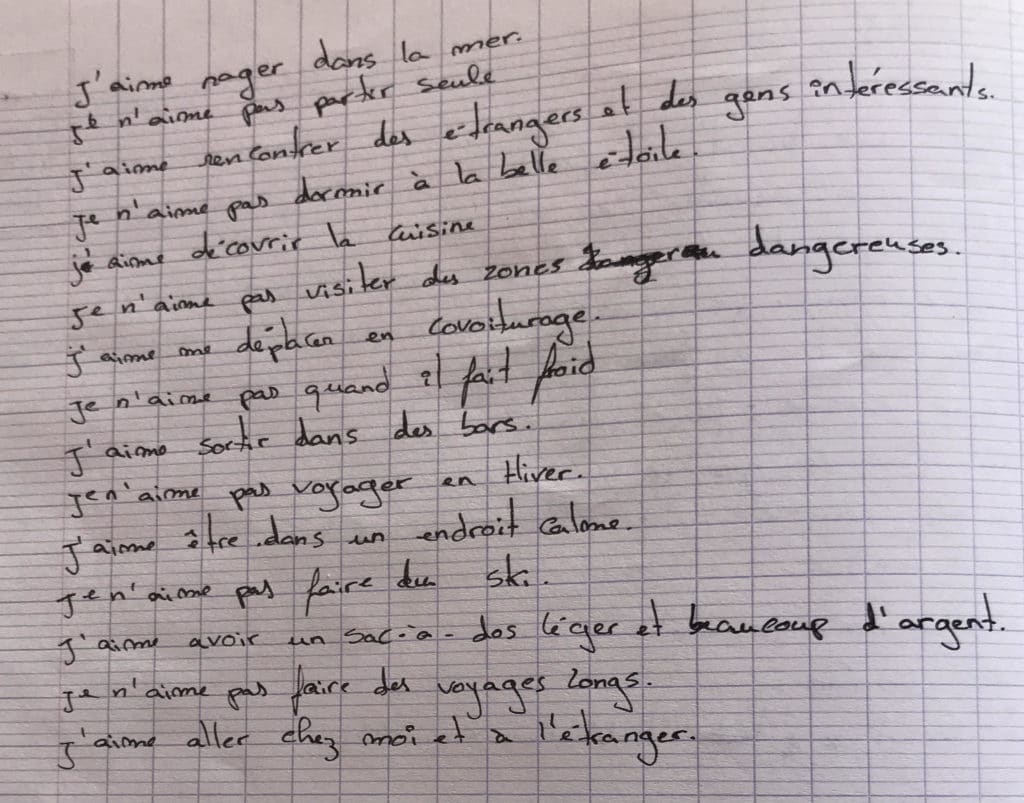 J'aime nager dans la mer.
Je n'aime pas partir seule
J'aime rencontrer des étrangers et des gens intéressants.
Je n'aime pas dormir à la belle étoile.
j'aime découvrir la cuisine
Je n'aime pas visiter des zones dangereuses.
J'aime me déplacer en covoiturage.
Je n'aime pas quand il fait froid
J'aime sortir dans des bars.
Je n'aime pas voyager en Hiver.
J'aime être dans un endroit calme.
Je n'aime pas faire du ski.
J'aime avoir un sac-à-dos léger et beaucoup d'argent.
Je n'aime pas faire des voyages longs.
J'aime aller chez moi et à l'étranger.